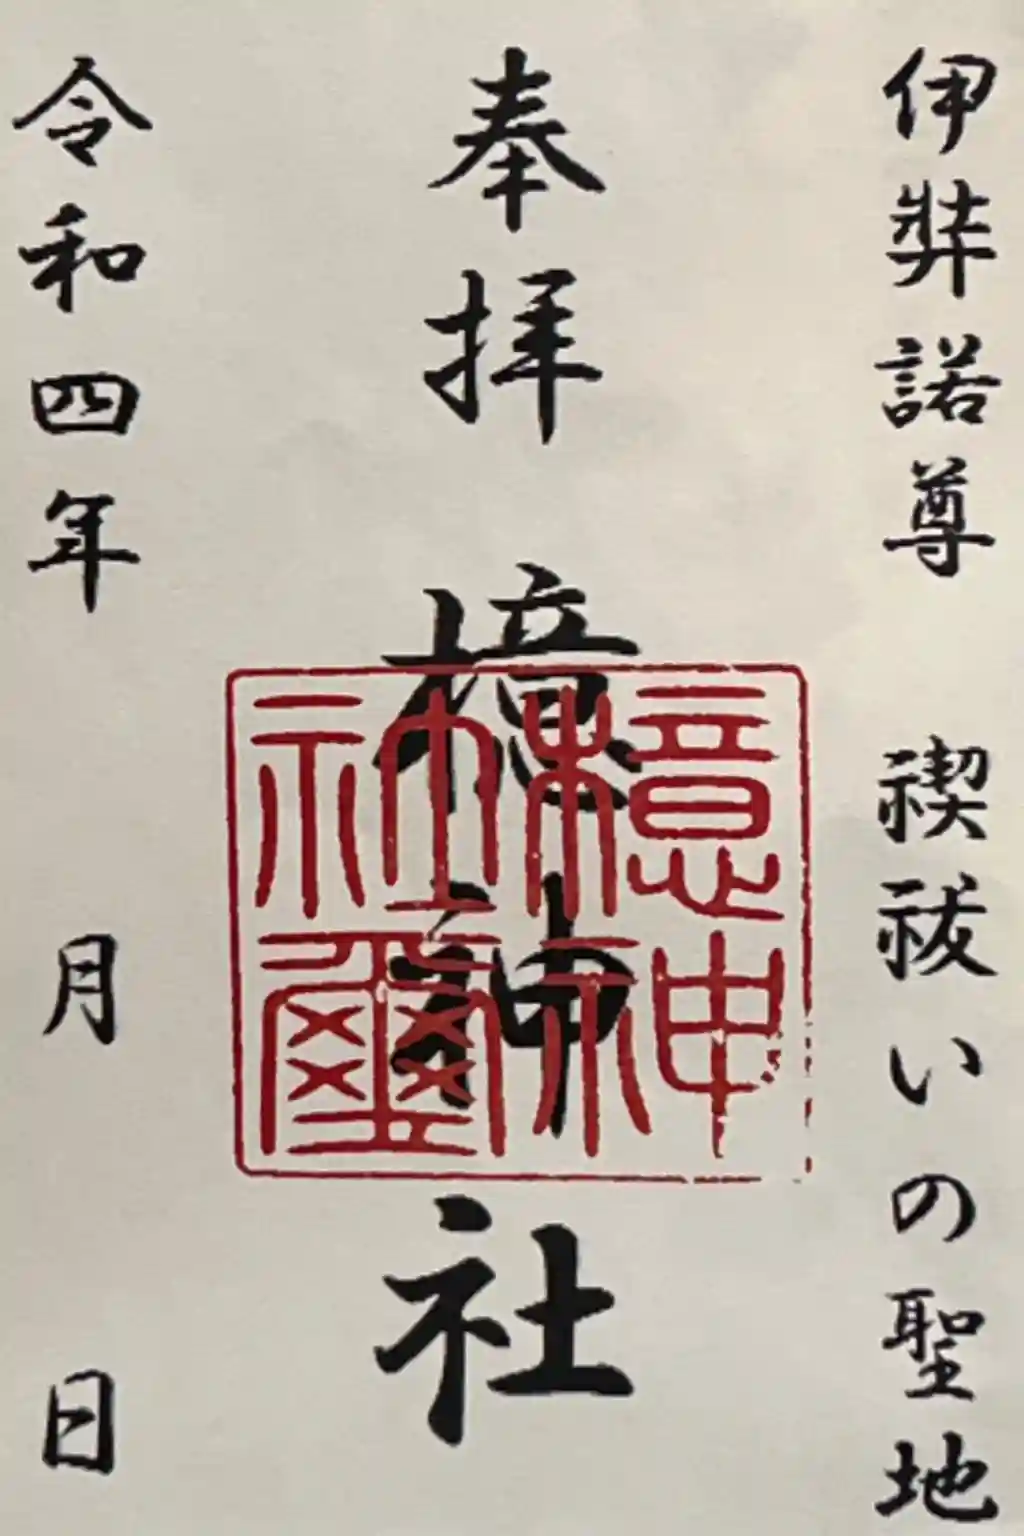 伊弉諾尊 禊祓いの聖地
奉拝 檍神社
檍神
社璽
令和四年 月 日